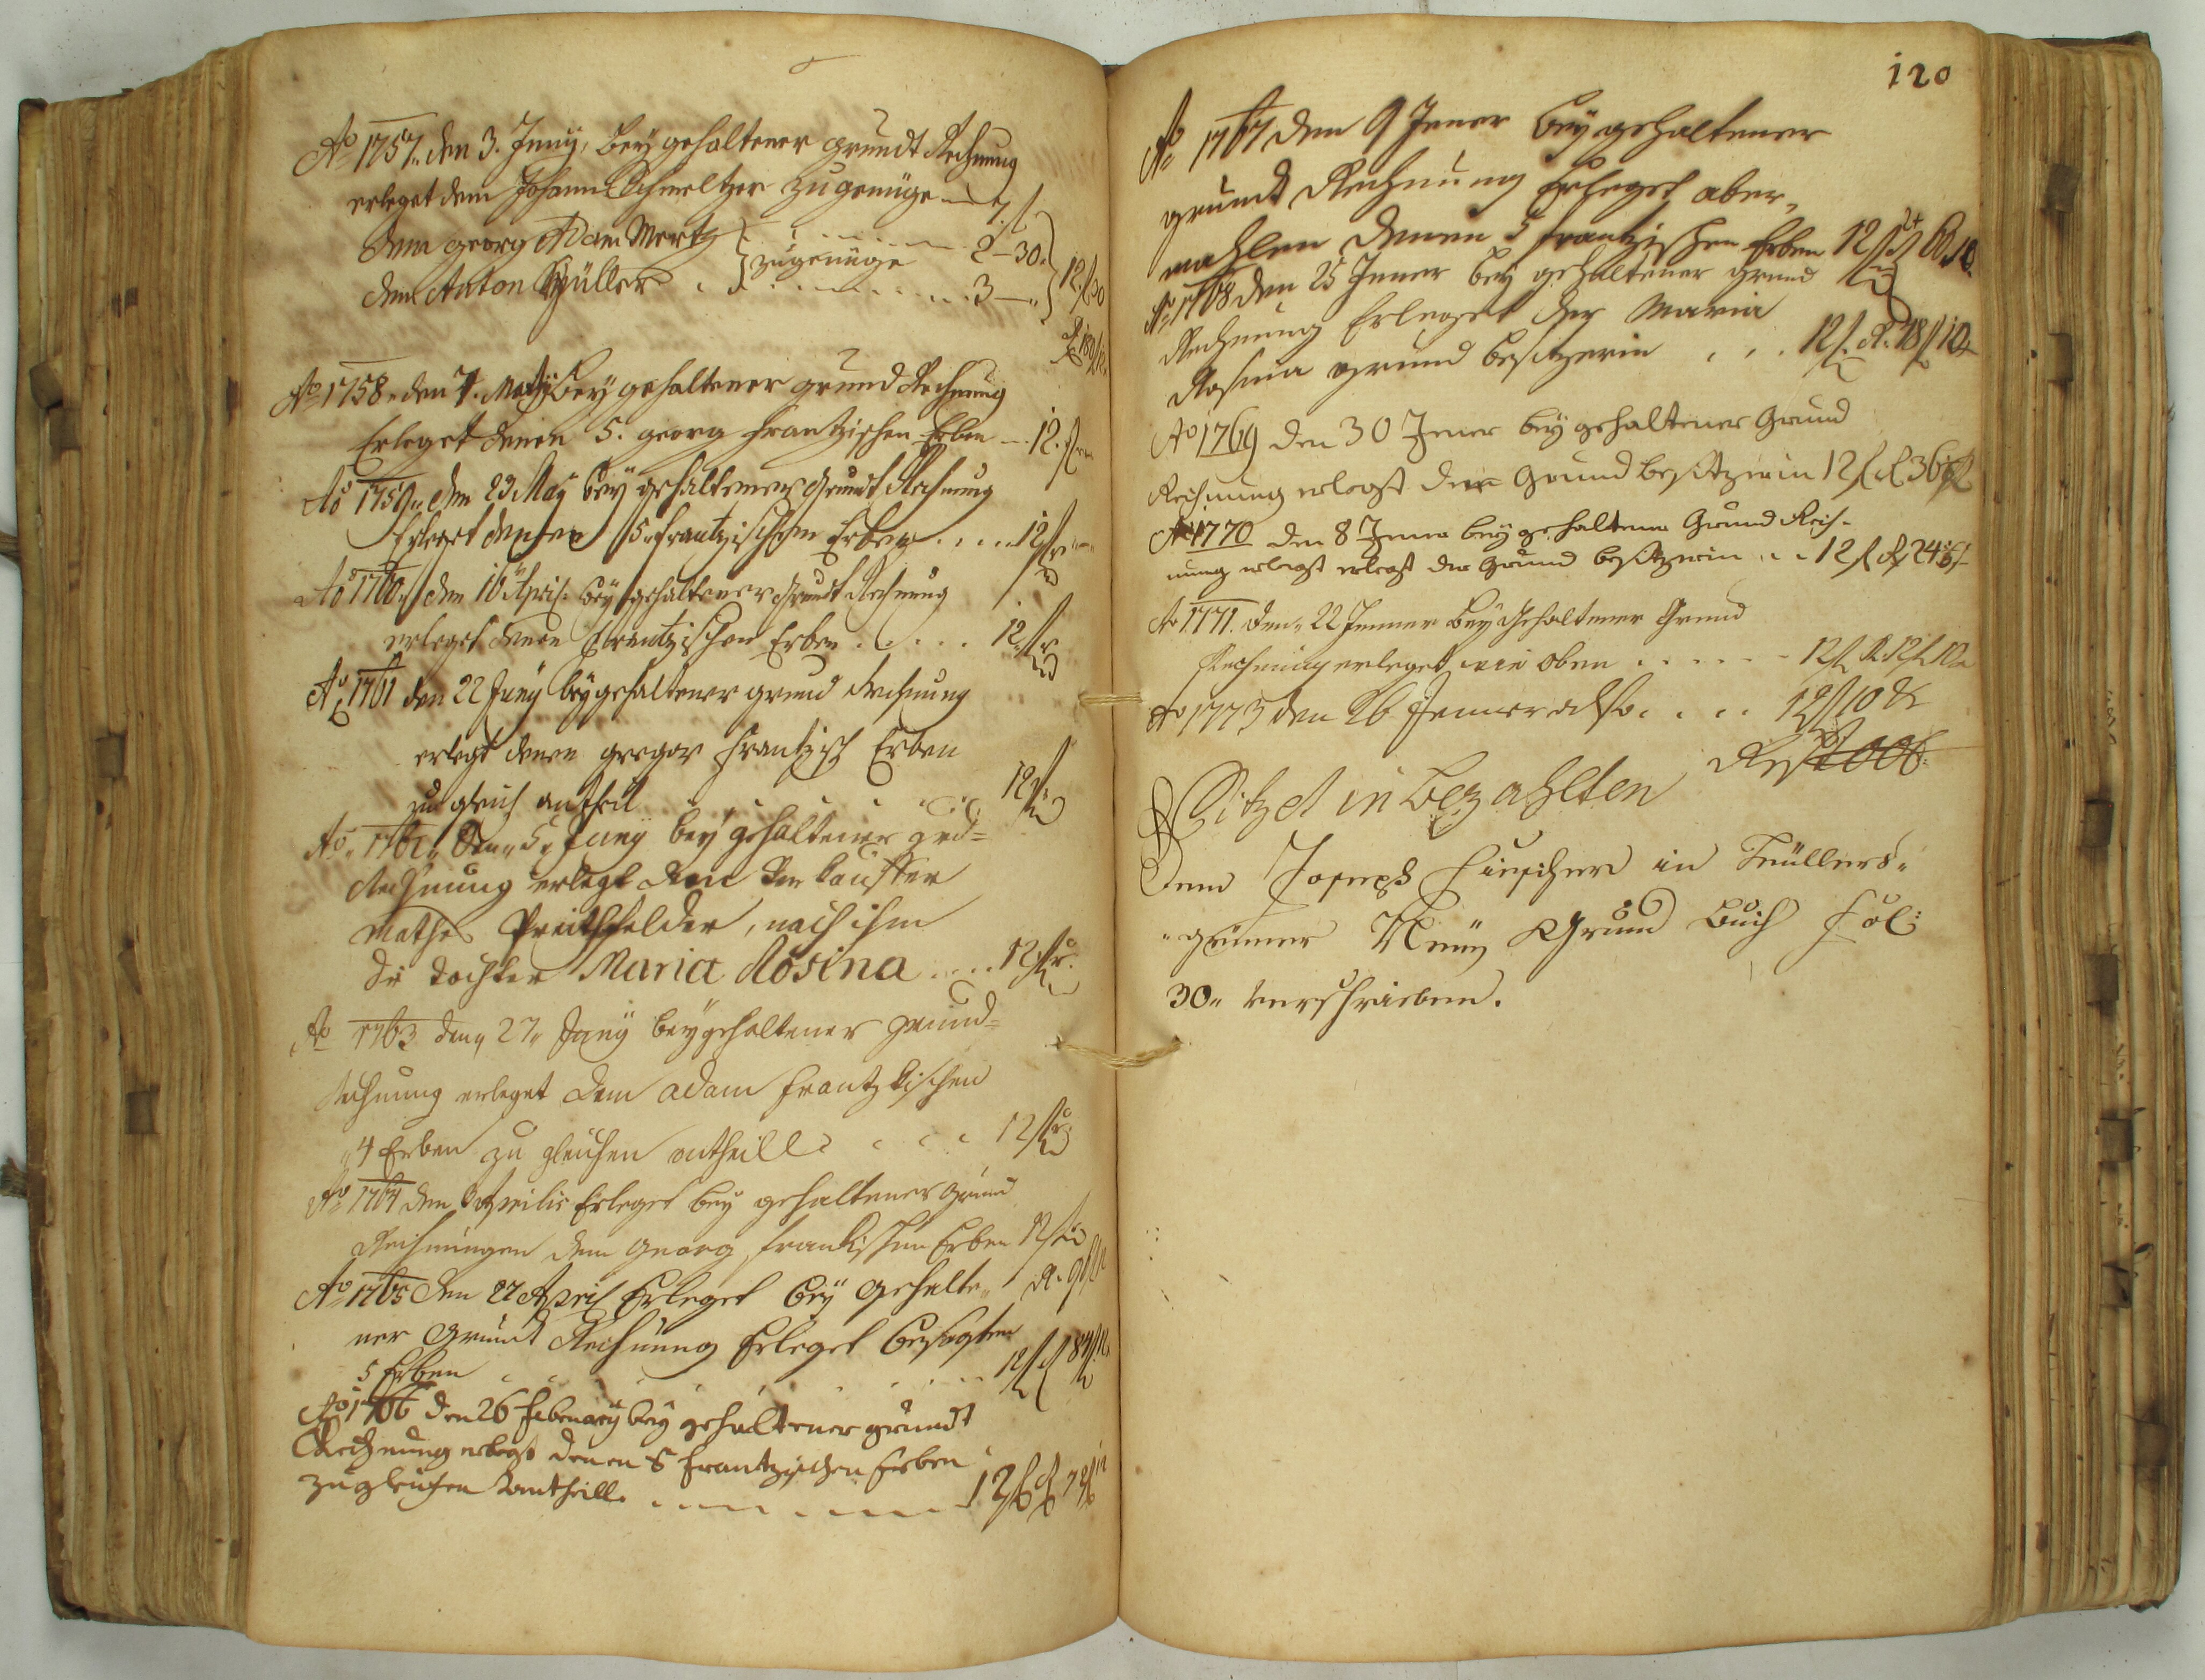 Ao 1757. den 3. Juny, bey gehaltener grundt Rechnung
erleget dem Johann Schmeltzer zu genüge 7 f
dem georg Adam Mertz 2 – 30
zu genüge
dem Anton Müller 3 –
12 f 30
Ao 1758. den 7. May bey gehaltener grund Rechnung
Erleget denen 5. georg Frantzischen Erben 12. f
Ao 1759. den 23 May bey gehaltener grundt Rechnung
Erleget denen 5 Frantzischen Erben 12 f
Ao 1760. den 10 April bey gehaltener grundt Rechnung
erleget denen Frantzischen Erben 12 f
Ao 1761 den 22 Juny bey gehaltener grund Rechnung
erlegt denen gregor Frantzisch Erben
zu gleich antheil 12 f
Ao 1762 den 5. Juny bey gehaltener grd=
Rechnung erlegt dem verkauffer
Mathes , nach ihm
die dochter Maria Rosina 12 f
Ao 1763 den 27 Juny bey gehaltener grund=
Rechnung erleget dem adam Frantzkischen
4 Erben zu gleichen antheill 12 f
Ao 1764 den Aprilis Erleget bey gehaltener grund
Rechnungen dem Georg Frankischen Erben 12 f
Ao 1765 den 27 April Erleget bey gehalte-
ner Grundt Rechnung Erleget besagten
5 Erben 12 f R 84 f
Ao 1766 den 26 Februarij bey gehaltener grundt
Rechnung erlegt denen 5 Frantzischen Erben
zu gleichen antheill 12 f R 72 f
120
Ao 1767 den 9 Jener bey gehaltener
grundt Rechnung Erleget aber-
mahlen denen 5 Frantzischen Erben 12 f R 60
Ao 1768 den 25 Jener bey gehaltener grund
Rechnung Erleget der Maria
Rosina grund besitzerin 12 f. R. 48 f 10
Ao 1769 den 30 Jener bey gehaltener Grund
Rechnung erlegt der Grund besitzerin 12 f R 36 f
Ao 1770 den 8 Jener bey gehaltener Grund Rech-
nung erlegt erlegt der Grund besitzerin 12 f R 24 f
Ao 1771. den 22 Jenner bey Gehaltener Grund
Rechnung erleget wie oben 12 f R. 12 f 10
Ao 1773 den 26 Jenner also 12 f 10 x
Rest
Sitzet in bezahlten
Dem Joseph Fischer in Müllers-
grüner Neuy Grund Buch Fol:
30 verschrieben.